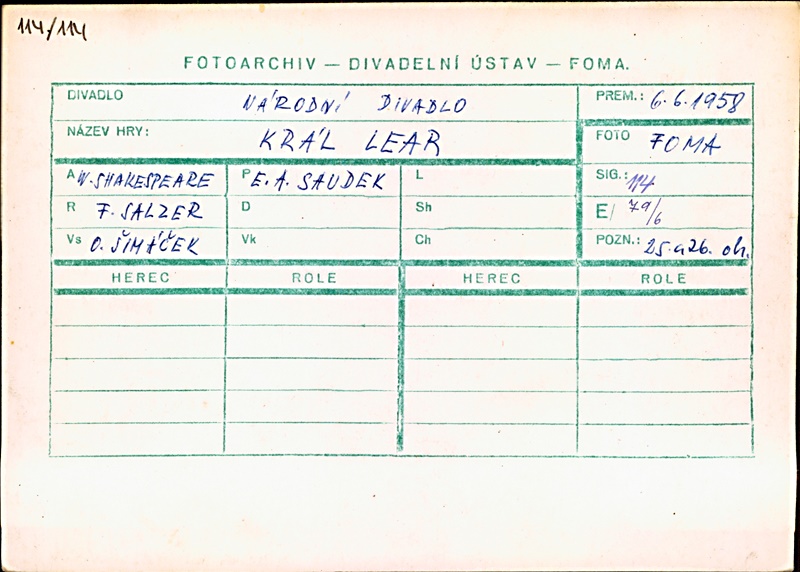 114/114
FOTOARCHIV — DIVADELNÍ ÚSTAV — FOMA.
DIVADLO NÁRODNÍ DIVADLO PREM.: 6.6.1958
NÁZEV HRY: KRÁL LEAR FOTO FOMA
A W. SHAKESPEARE P E. A. SAUDEK L SIG.: 114
R F. SALZER D Sh E/ 79/6
Vs O. ŠIMÁČEK Vk Ch POZN.: 25. a 26. ob.
HEREC ROLE HEREC ROLE